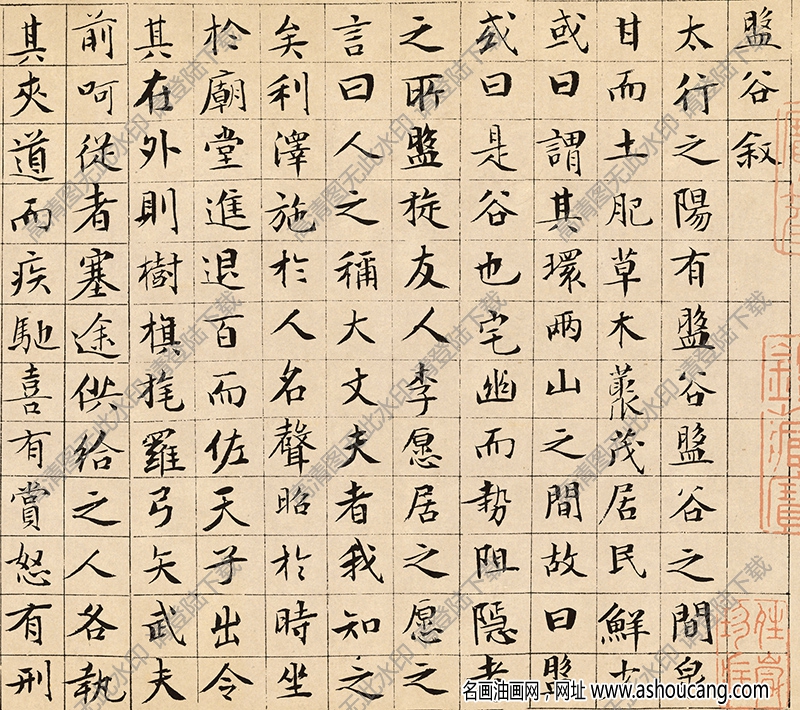 盤谷叙
太行之陽有盤谷盤谷之間泉
甘而土肥草木藂茂居民鮮少
或曰謂其環兩山之間故曰盤
或曰是谷也宅幽而勢阻隱者
之所盤旋友人李愿居之愿之
言曰人之稱大丈夫者我知之
矣利澤施於人名聲昭於時坐
於廟堂進退百而佐天子出令
其在外則樹旗旄羅弓矢武夫
前呵從者塞途供給之人各執
其夾道而疾馳喜有賞怒有刑
高清图无此水印 请登陆下载
名画油画网，网址 www.ashoucang.com